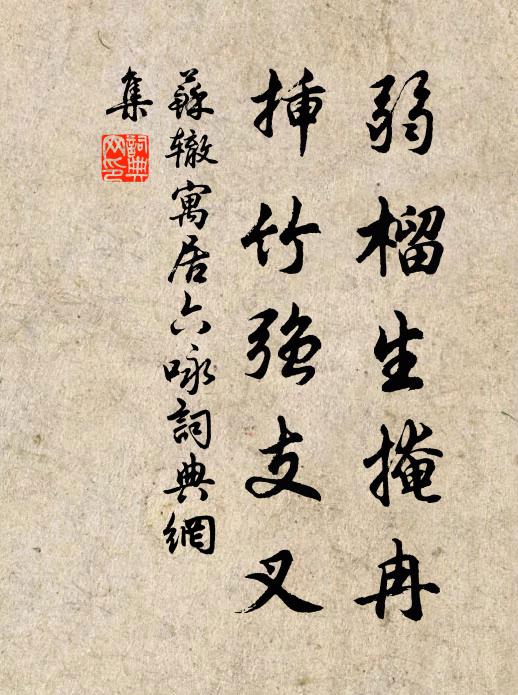 弱榴生掩冉
插竹強支叉
蘇轍寓居六詠詞典網
集
詞典網印